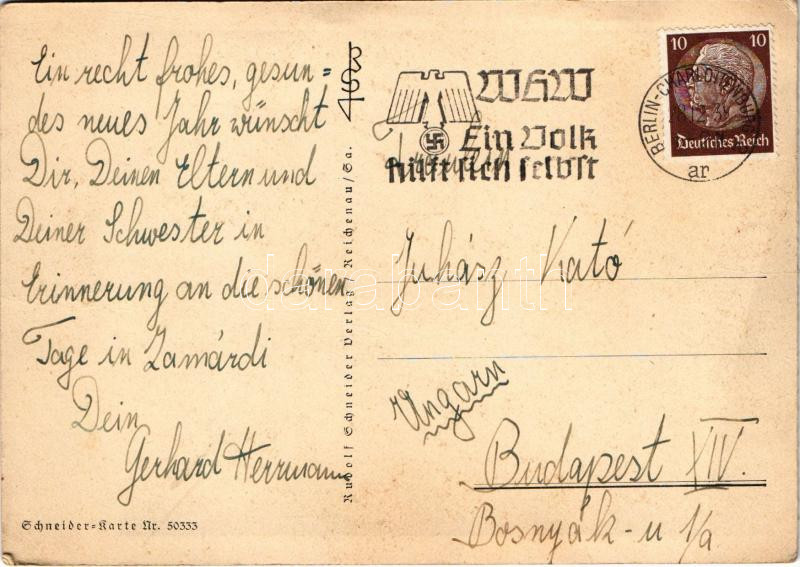 Ein recht frohes, gesun=
des neues Jahr wünscht
Dir, Deinen Eltern und
Deiner Schwester in
Erinnerung an die schönen
Tage in Zamárdi
Dein
Gerhard Herrmann
Schneider=Karte Nr. 50333
Rudolf Schneider Verlag, Reichenau/Sa.
WHW
Ein Volk
hilft sich selbst
10 10
Deutsches Reich
BERLIN-CHARLOTTENBURG
ar
Fräulein
Juhász Kató
Ungarn
Budapest XIV.
Bosnyák-u 1/a
darabanth